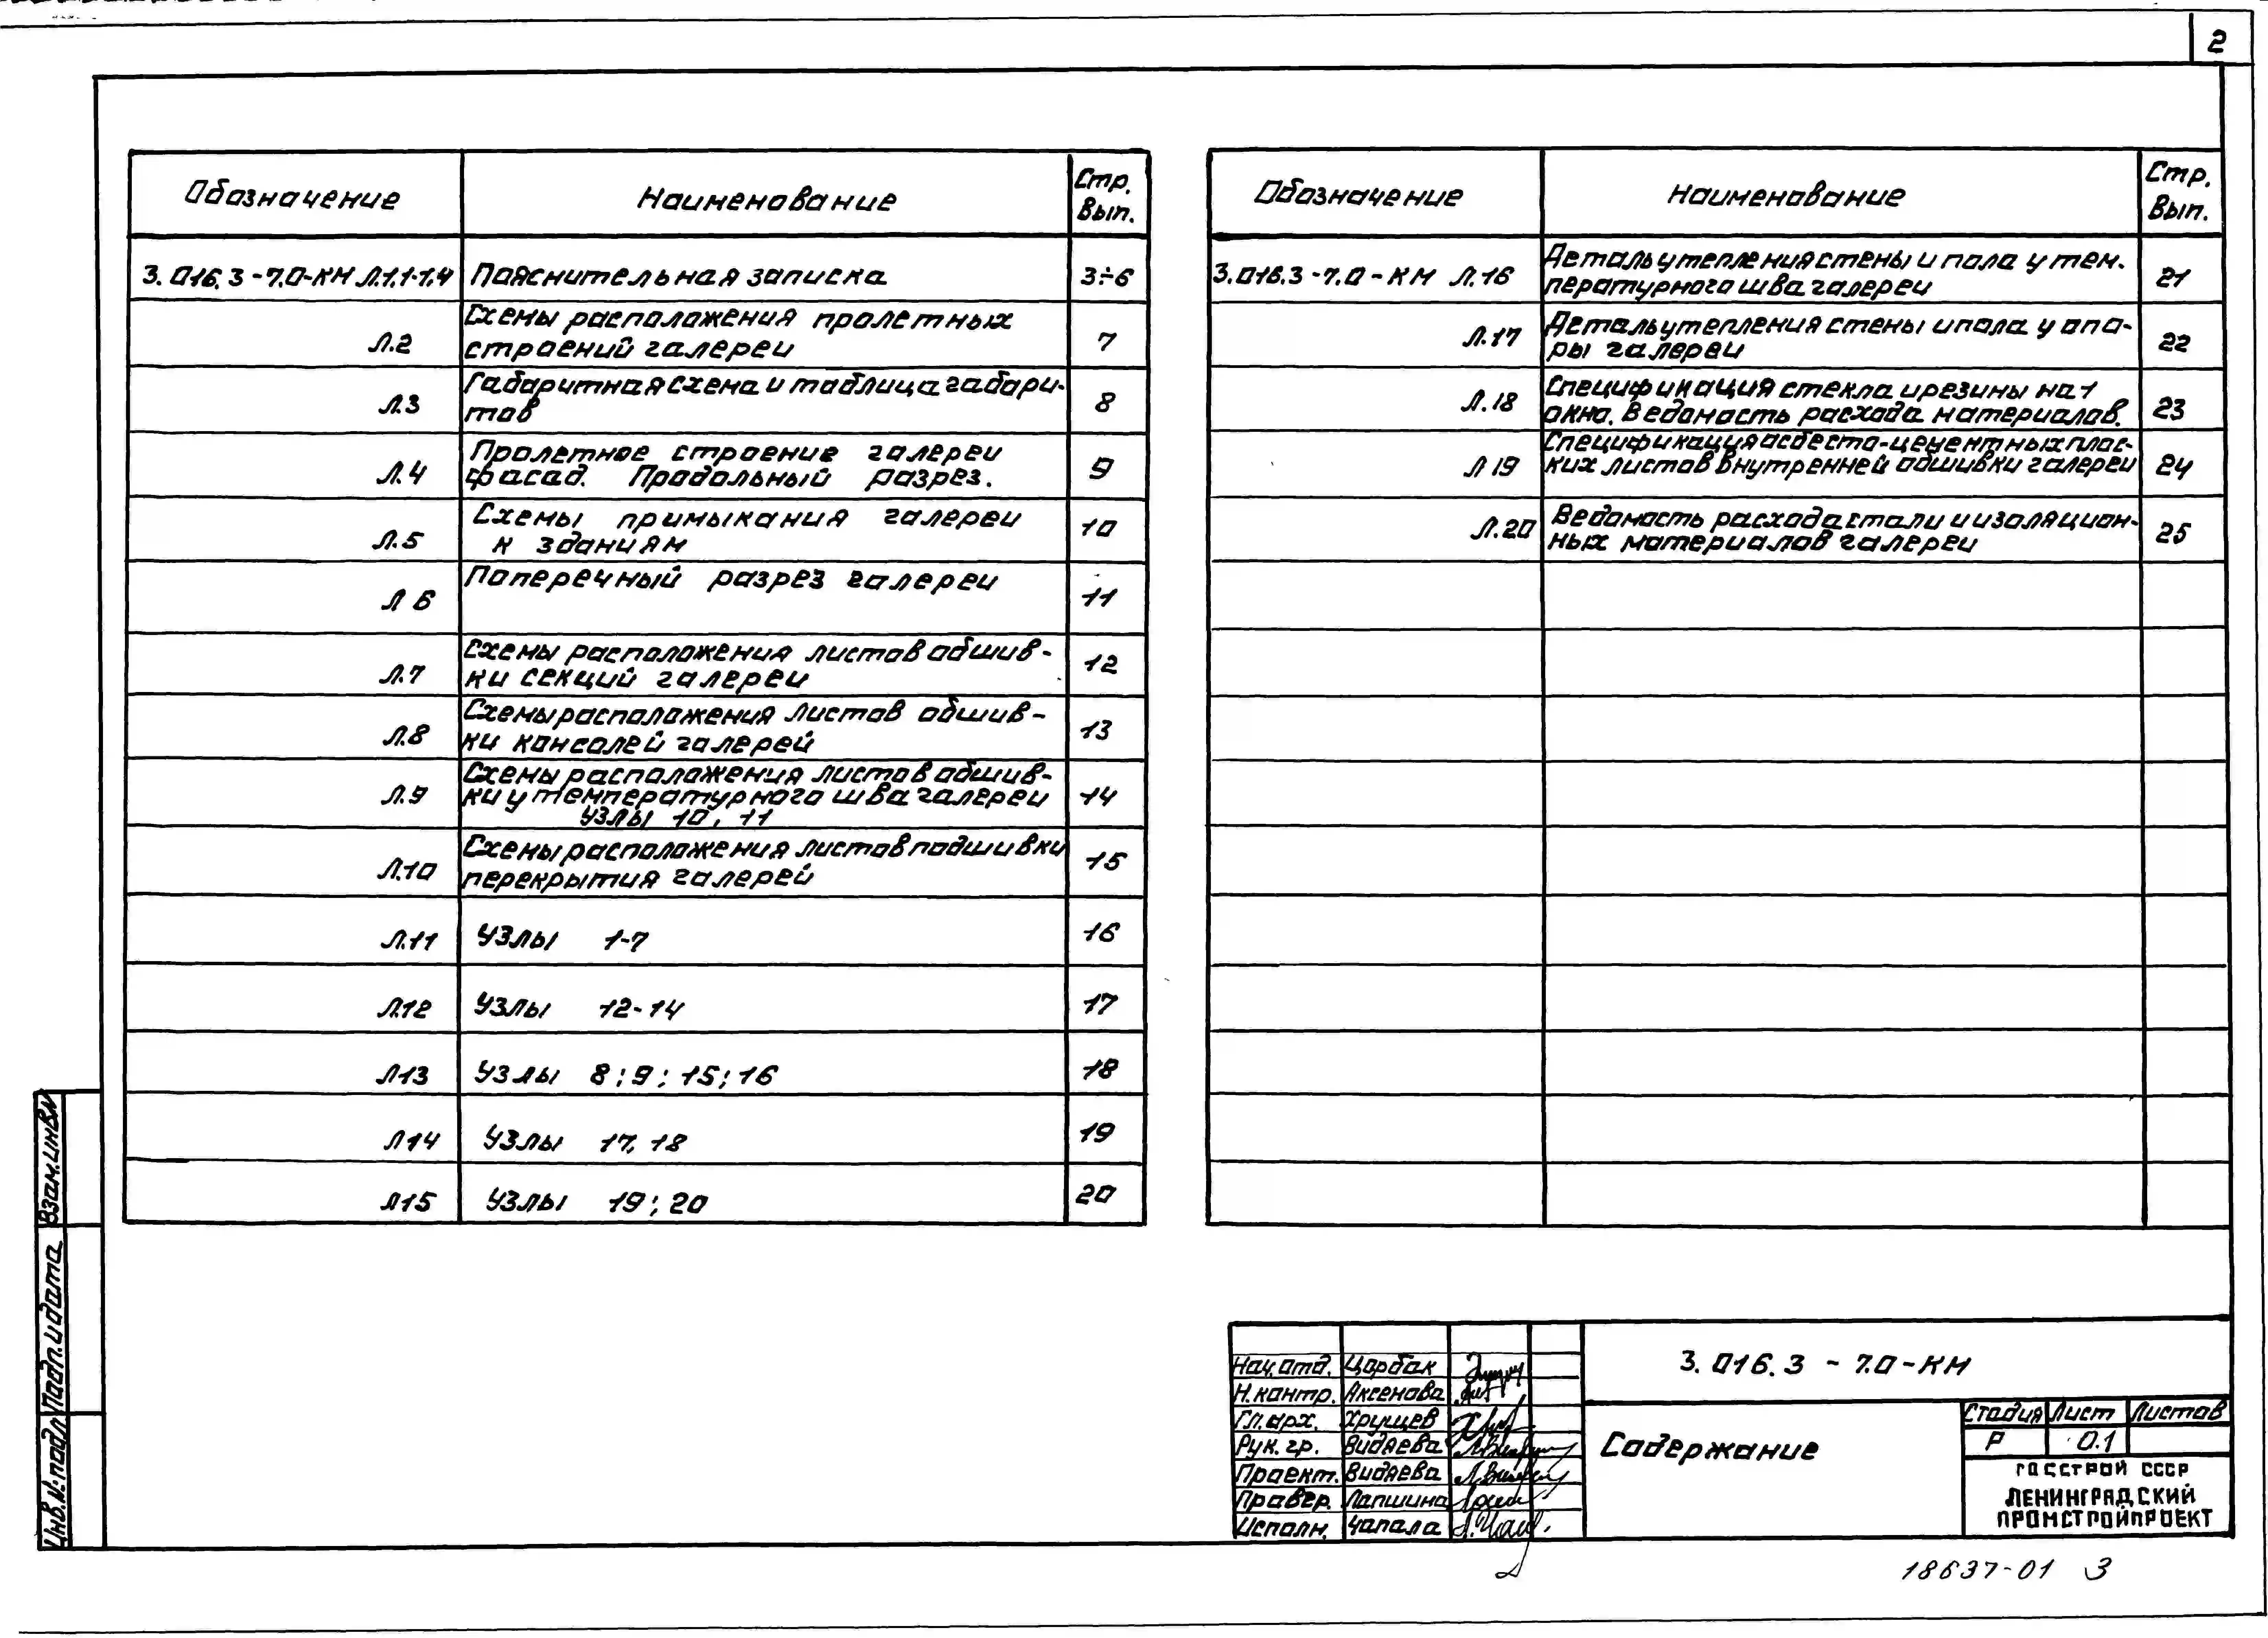 2
Обозначение Наименование Стр. Вып.
3.016.3-7.0-КМ Л.1.1-1.4 Пояснительная записка 3÷6
Л.2 Схемы расположения пролетных
строений галереи 7
Л.3 Габаритная схема и таблица габари-
тов 8
Л.4 Пролетное строение галереи
фасад. Продольный разрез. 9
Л.5 Схемы примыкания галереи
к зданиям 10
Л 6 Поперечный разрез галереи 11
Л.7 Схемы расположения листов обшив-
ки секций галереи 12
Л.8 Схемы расположения листов обшив-
ки консолей галерей 13
Л.9 Схемы расположения листов обшив-
ки у температурного шва галереи
Узлы 10, 11 14
Л.10 Схемы расположения листов подшивки
перекрытия галерей 15
Л.11 Узлы 1-7 16
Л.12 Узлы 12-14 17
Л13 Узлы 8; 9; 15; 16 18
Л14 Узлы 17, 18 19
Л15 Узлы 19; 20 20
Обозначение Наименование Стр. Вып.
3.016.3-7.0-КМ Л.16 Деталь утепления стены и пола у тем-
пературного шва галереи 21
Л.17 Деталь утепления стены и пола у опо-
ры галереи 22
Л.18 Спецификация стекла и резины на 1
окно. Ведомость расхода материалов. 23
Л 19 Спецификация асбесто-цементных плос-
ких листов внутренней обшивки галереи 24
Л.20 Ведомость расхода стали и изоляцион-
ных материалов галереи 25
Взам. инв N
Подп. и дата
Инв. № подл
Нач. отд. Царбак
Н. контр. Аксенова
Гл. арх. Хрущев
Рук. гр. Видяева
Проект. Видяева
Провер. Лапшина
Исполн. Чапала
3.016.3-7.0-КМ
Содержание
Стадия Лист Листов
Р 0.1
ГОССТРОЙ СССР
ЛЕНИНГРАДСКИЙ
ПРОМСТРОЙПРОЕКТ
18637-01 3